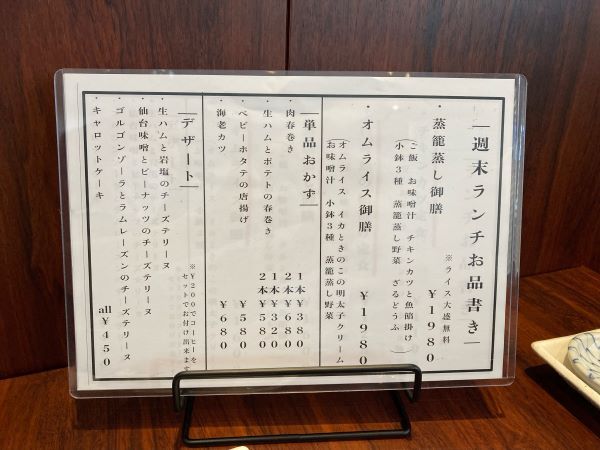 週末ランチお品書き
※ライス大盛無料
・蒸籠蒸し御膳 ¥1980
(ご飯 お味噌汁 チキンカツと魚餡掛け
小鉢3種 蒸籠蒸し野菜 ざるどうふ)
・オムライス御膳 ¥1980
(オムライス イカときのこの明太子クリーム
お味噌汁 小鉢3種 蒸籠蒸し野菜
単品おかず
・肉春巻き 1本¥380
2本¥680
・生ハムとポテトの春巻き 1本¥320
2本¥580
・ベビーホタテの唐揚げ ¥580
・海老カツ ¥680
デザート
※¥200でコーヒーを
セットでお付け出来ます
・生ハムと岩塩のチーズテリーヌ
・仙台味噌とピーナッツのチーズテリーヌ
・ゴルゴンゾーラとラムレーズンのチーズテリーヌ
・キャロットケーキ
all¥450